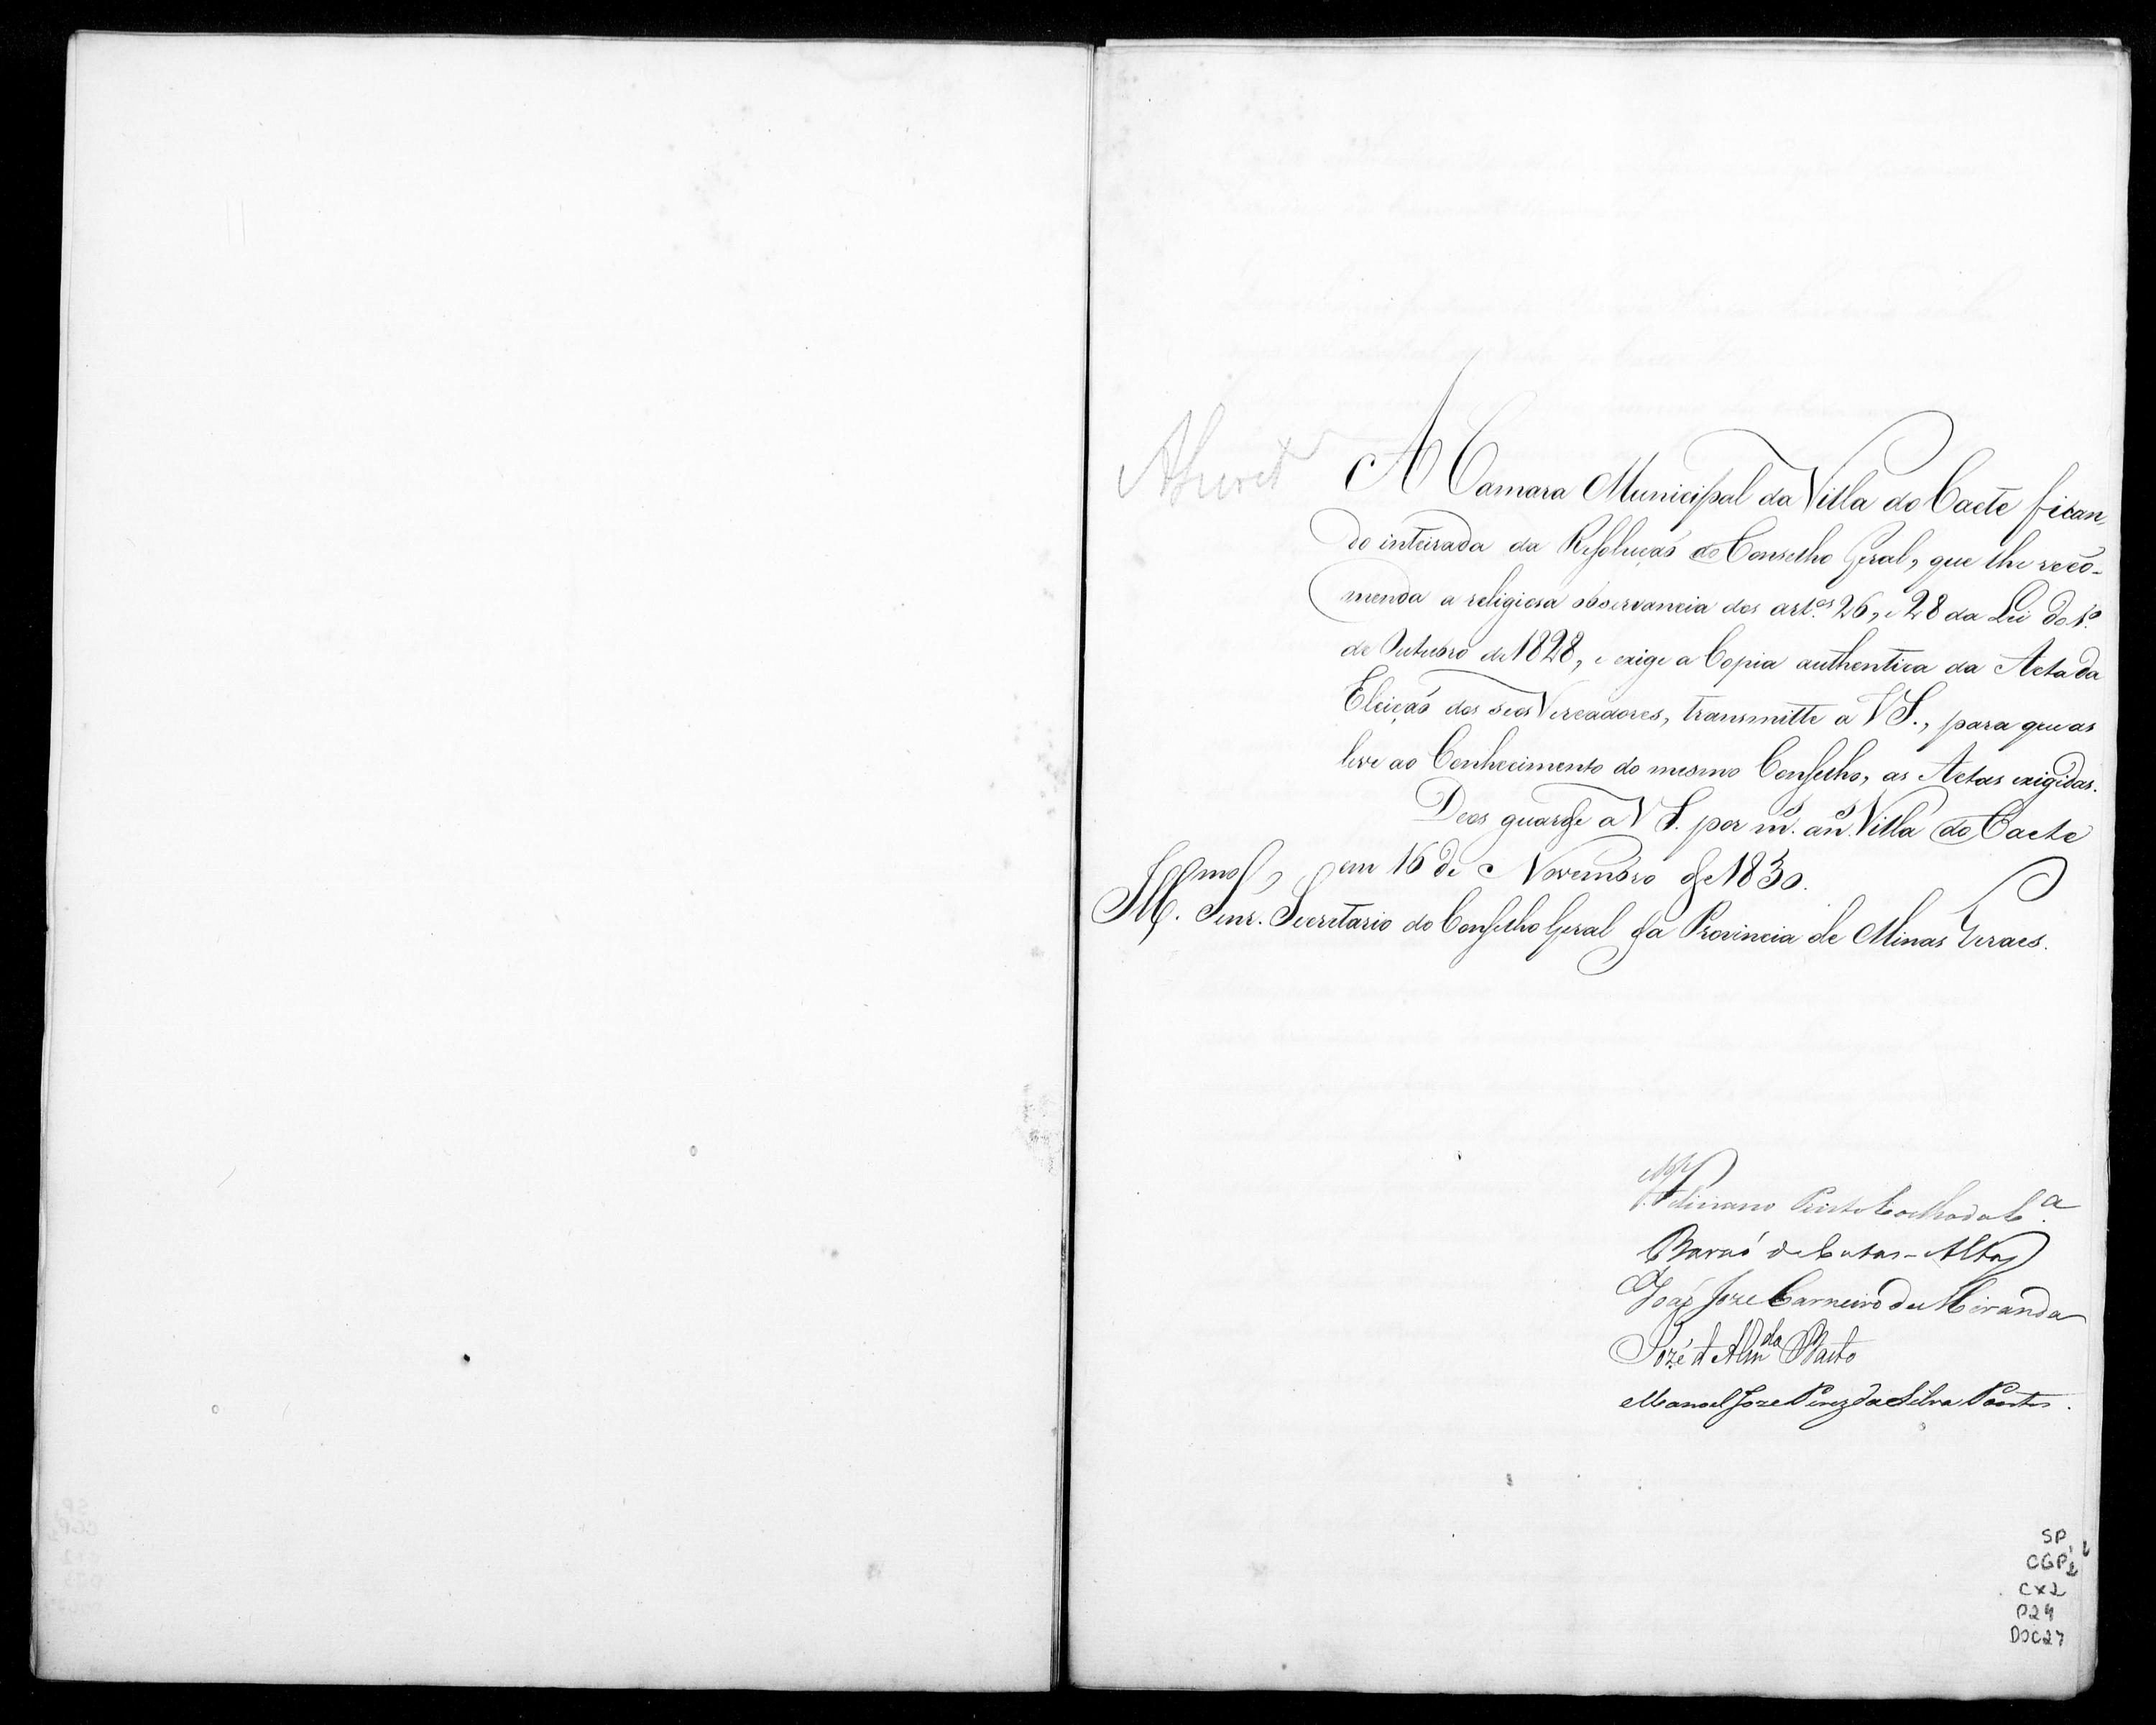 A Camara Municipal da Villa do Caeté fican-
do inteirada da Resoluçaõ do Conselho Geral, que lhe recõ-
menda a religiosa observancia dos art.os 26, e 28 da Lei do 1.º
de Outubro de 1828, e exige a Copia authentica da Acta da
Eleiçaõ dos seos Vereadores, transmitte a V S., para que as
leve ao Conhecimento do mesmo Conselho, as Actas exigidas.
Deos guarde a V S. por m.s an.s Villa do Caeté
em 16 de Novembro de 1830.
Ill.mo Senr. Secretario do Conselho Geral da Provincia de Minas Geraes.
Feliciano Pinto Coelho da C.a
Baraõ de Catas-Altas
Joaõ Joze Carneiro de Miranda
Jozé d'Alm.da
Manoel Joze Pires da Silva Pontes.
SP
CGP 1/2
CX2
P24
DOC27